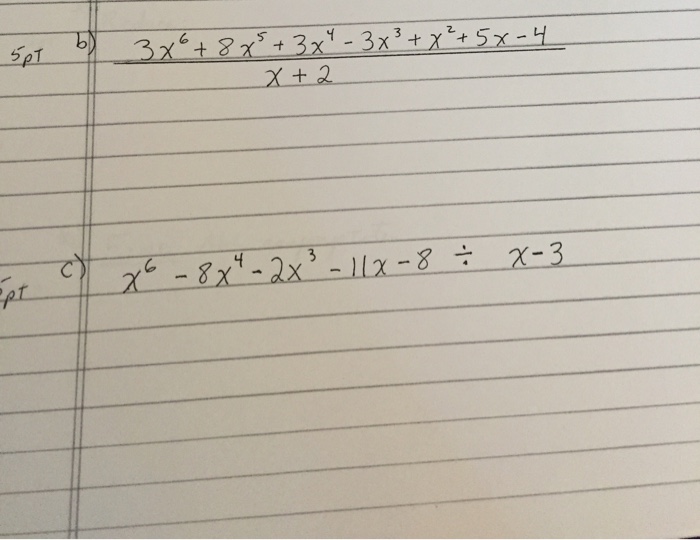 5pT b) 3x⁶ + 8x⁵ + 3x⁴ - 3x³ + x² + 5x - 4
x + 2
5pt c) x⁶ - 8x⁴ - 2x³ - 11x - 8 ÷ x-3